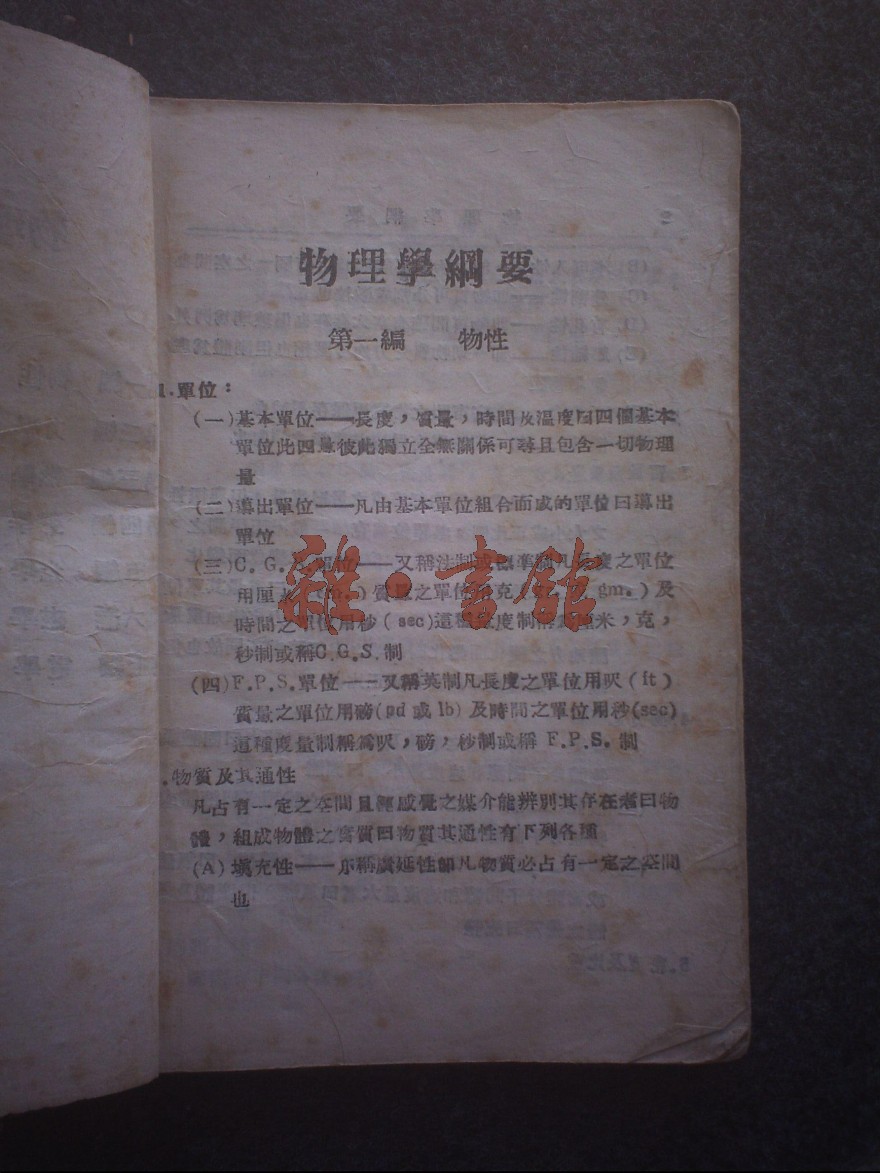 物理學綱要
第一編 物性
1.單位：
(一)基本單位——長度，質量，時間及溫度曰四個基本
單位此四量彼此獨立全無關係可尋且包含一切物理
量
(二)導出單位——凡由基本單位組合而成的單位曰導出
單位
(三)C.G.S.單位——又稱法制或標準制凡長度之單位
用厘米 質量之單位用克 gm.)及
時間之單位用秒(sec)這種 度制稱爲厘米，克，
秒制或稱C.G.S.制
(四)F.P.S.單位——又稱英制凡長度之單位用呎(ft)
質量之單位用磅(pd或lb)及時間之單位用秒(sec)
這種度量制稱爲呎，磅，秒制或稱 F.P.S.制
.物質及其通性
凡占有一定之空間且經感覺之媒介能辨別其存在者曰物
體，組成物體之實質曰物質其通性有下列各種
(A)填充性——亦稱廣延性卽凡物質必占有一定之空間
也
雜·書館